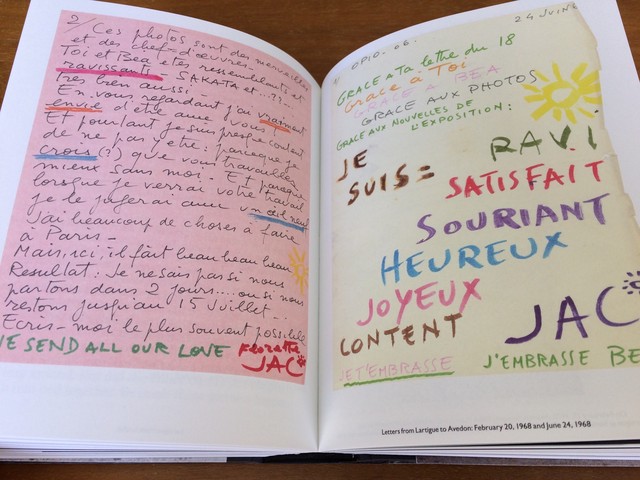 2/ Ces photos sont des merveilles
et des chef-d'œuvres.
Toi et Bea êtes ressemblants et
ravissants - SAKATA et...??...
très bien aussi -
En vous regardant j'ai vraiment
envie d'être avec vous !
Et pourtant je suis presque content
de ne pas y être : parceque je
crois (?) que vous travaillez
mieux sans moi - Et parceque
lorsque je verrai votre travail
je le jugerai avec un œil neuf
J'ai beaucoup de choses à faire
à Paris -
Mais, ici, il fait beau beau beau
Resultat : Je ne sais pas si nous
partons dans 2 jours.... ou si nous
restons jusqu'au 15 Juillet.
Ecris-moi le plus souvent possible
WE SEND ALL OUR LOVE Florette
JAC
OPIO - 06. 24 JUIN
GRACE A Ta lettre du 18
Grace à Toi
GRACE A BEA
GRACE AUX PHOTOS
GRACE AUX NOUVELLES DE
L'EXPOSITION :
JE
SUIS = RAVI
SATISFAIT
SOURIANT
HEUREUX
JOYEUX
CONTENT
JAC
JE T'EMBRASSE J'EMBRASSE BE
Letters from Lartigue to Avedon: February 20, 1968 and June 24, 1968